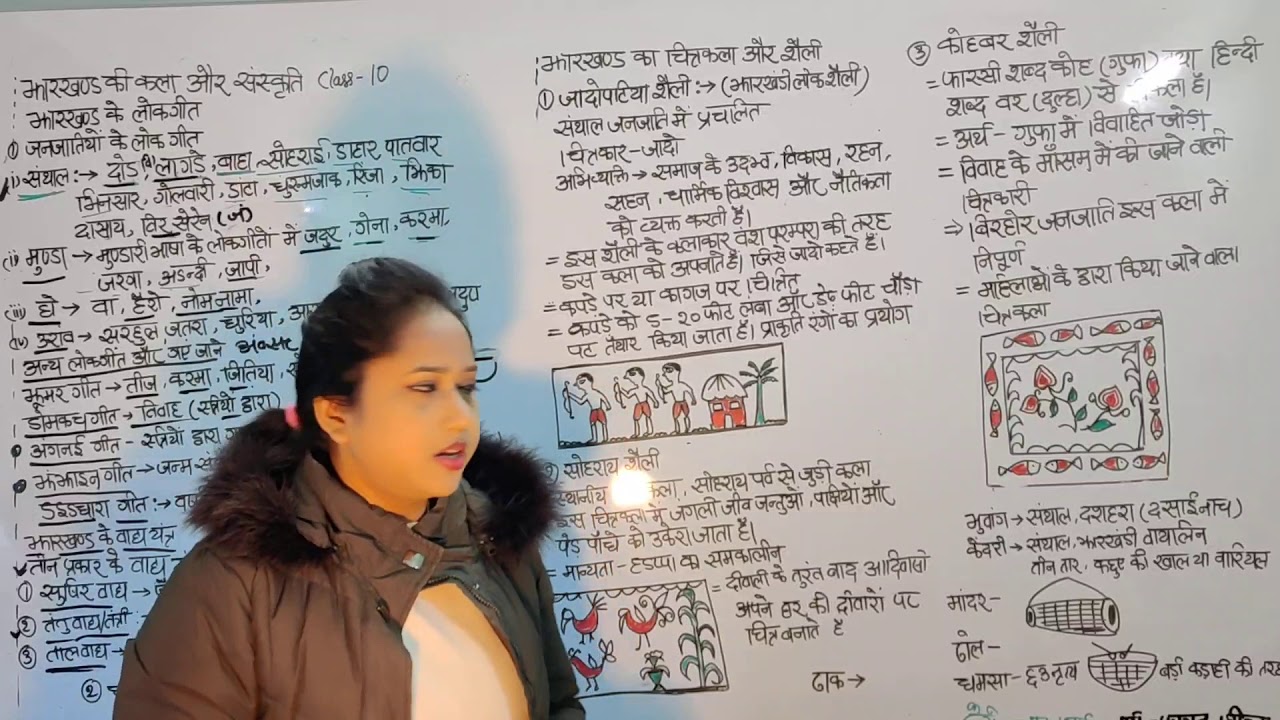 झारखण्ड की कला और संस्कृति Class-10
झारखण्ड के लोकगीत
① जनजातियों के लोक गीत
(i) संथाल :→ दोड, लागडे, वाहा, सोहराई, डाहार, पातवार
झिनसार, गोलवारी, डांटा, धुरूमजाक, रिंजा, झिका
दासाय, विर सेरेन (जं)
(ii) मुण्डा → मुण्डारी भाषा के लोकगीतों में जदुर, गेना, करमा,
जरवा, अडन्दी, जापी,
(iii) हो → वा, हैरो, नोमनामा,
(iv) उराव → सरहुल, जतरा, धुरिया,
अन्य लोकगीत और गाए जाने अवसर
झूमर गीत → तीज, करमा, जितिया,
डोमकच गीत → विवाह (स्त्रियों द्वारा)
अंगनई गीत - स्त्रियों द्वारा
झंझाइन गीत → जन्म
डइड़धारा गीत :→
झारखण्ड के वाद्य यंत्र
तीन प्रकार के वाद्य
① सुषिर वाद्य →
② तंतु वाद्य/तंत्री
③ तालवाद्य →
②
झारखण्ड का चित्रकला और शैली
① जादोपटिया शैली :→ (झारखंडी लोक शैली)
संथाल जनजाति में प्रचलित
चित्रकार-जादो
अभिव्यक्ति → समाज के उदभव, विकास, रहन,
सहन, धार्मिक विश्वास और नैतिकता
को व्यक्त करती है।
= इस शैली के कलाकार वंश परम्परा की तरह
इस कला को अपनाते है। जिसे जादो कहते है।
= कपडे पर या कागज पर चित्रित
= कपडे को 5-20 फीट लंबा और डेढ़ फीट चौड़ा
पट तैयार किया जाता है। प्राकृति रंगों का प्रयोग
② सोहराय शैली
स्थानीय कला, सोहराय पर्व से जुड़ी कला
इस चित्रकला में जंगली जीव जन्तुओं, पक्षियों और
पेड़ पौधों को उकेरा जाता है।
= मान्यता - हडप्पा का समकालीन
= दीवाली के तुरंत बाद आदिवासी
अपने घर की दीवारों पर
चित्र बनाते है
ढाक →
③ कोहबर शैली
= फारसी शब्द कोह (गुफा) तथा हिन्दी
शब्द वर (दुल्हा) से है।
= अर्थ - गुफा में विवाहित जोड़ी
= विवाह के मौसम में की जाने वाली
चित्रकारी
⇒ विरहोर जनजाति इस कला में
निपूर्ण
= महिलाओं के द्वारा किया जाने वाला
चित्रकला
भुवांग → संथाल, दशहरा (दसाई नाच)
केंवरी → संथाल, झारखंडी वायालिन
तीन तार, कछुए की खाल या नारियल
मांदर -
ढोल -
धमसा - छउ नृत्य बड़ी कड़ाही की तरह